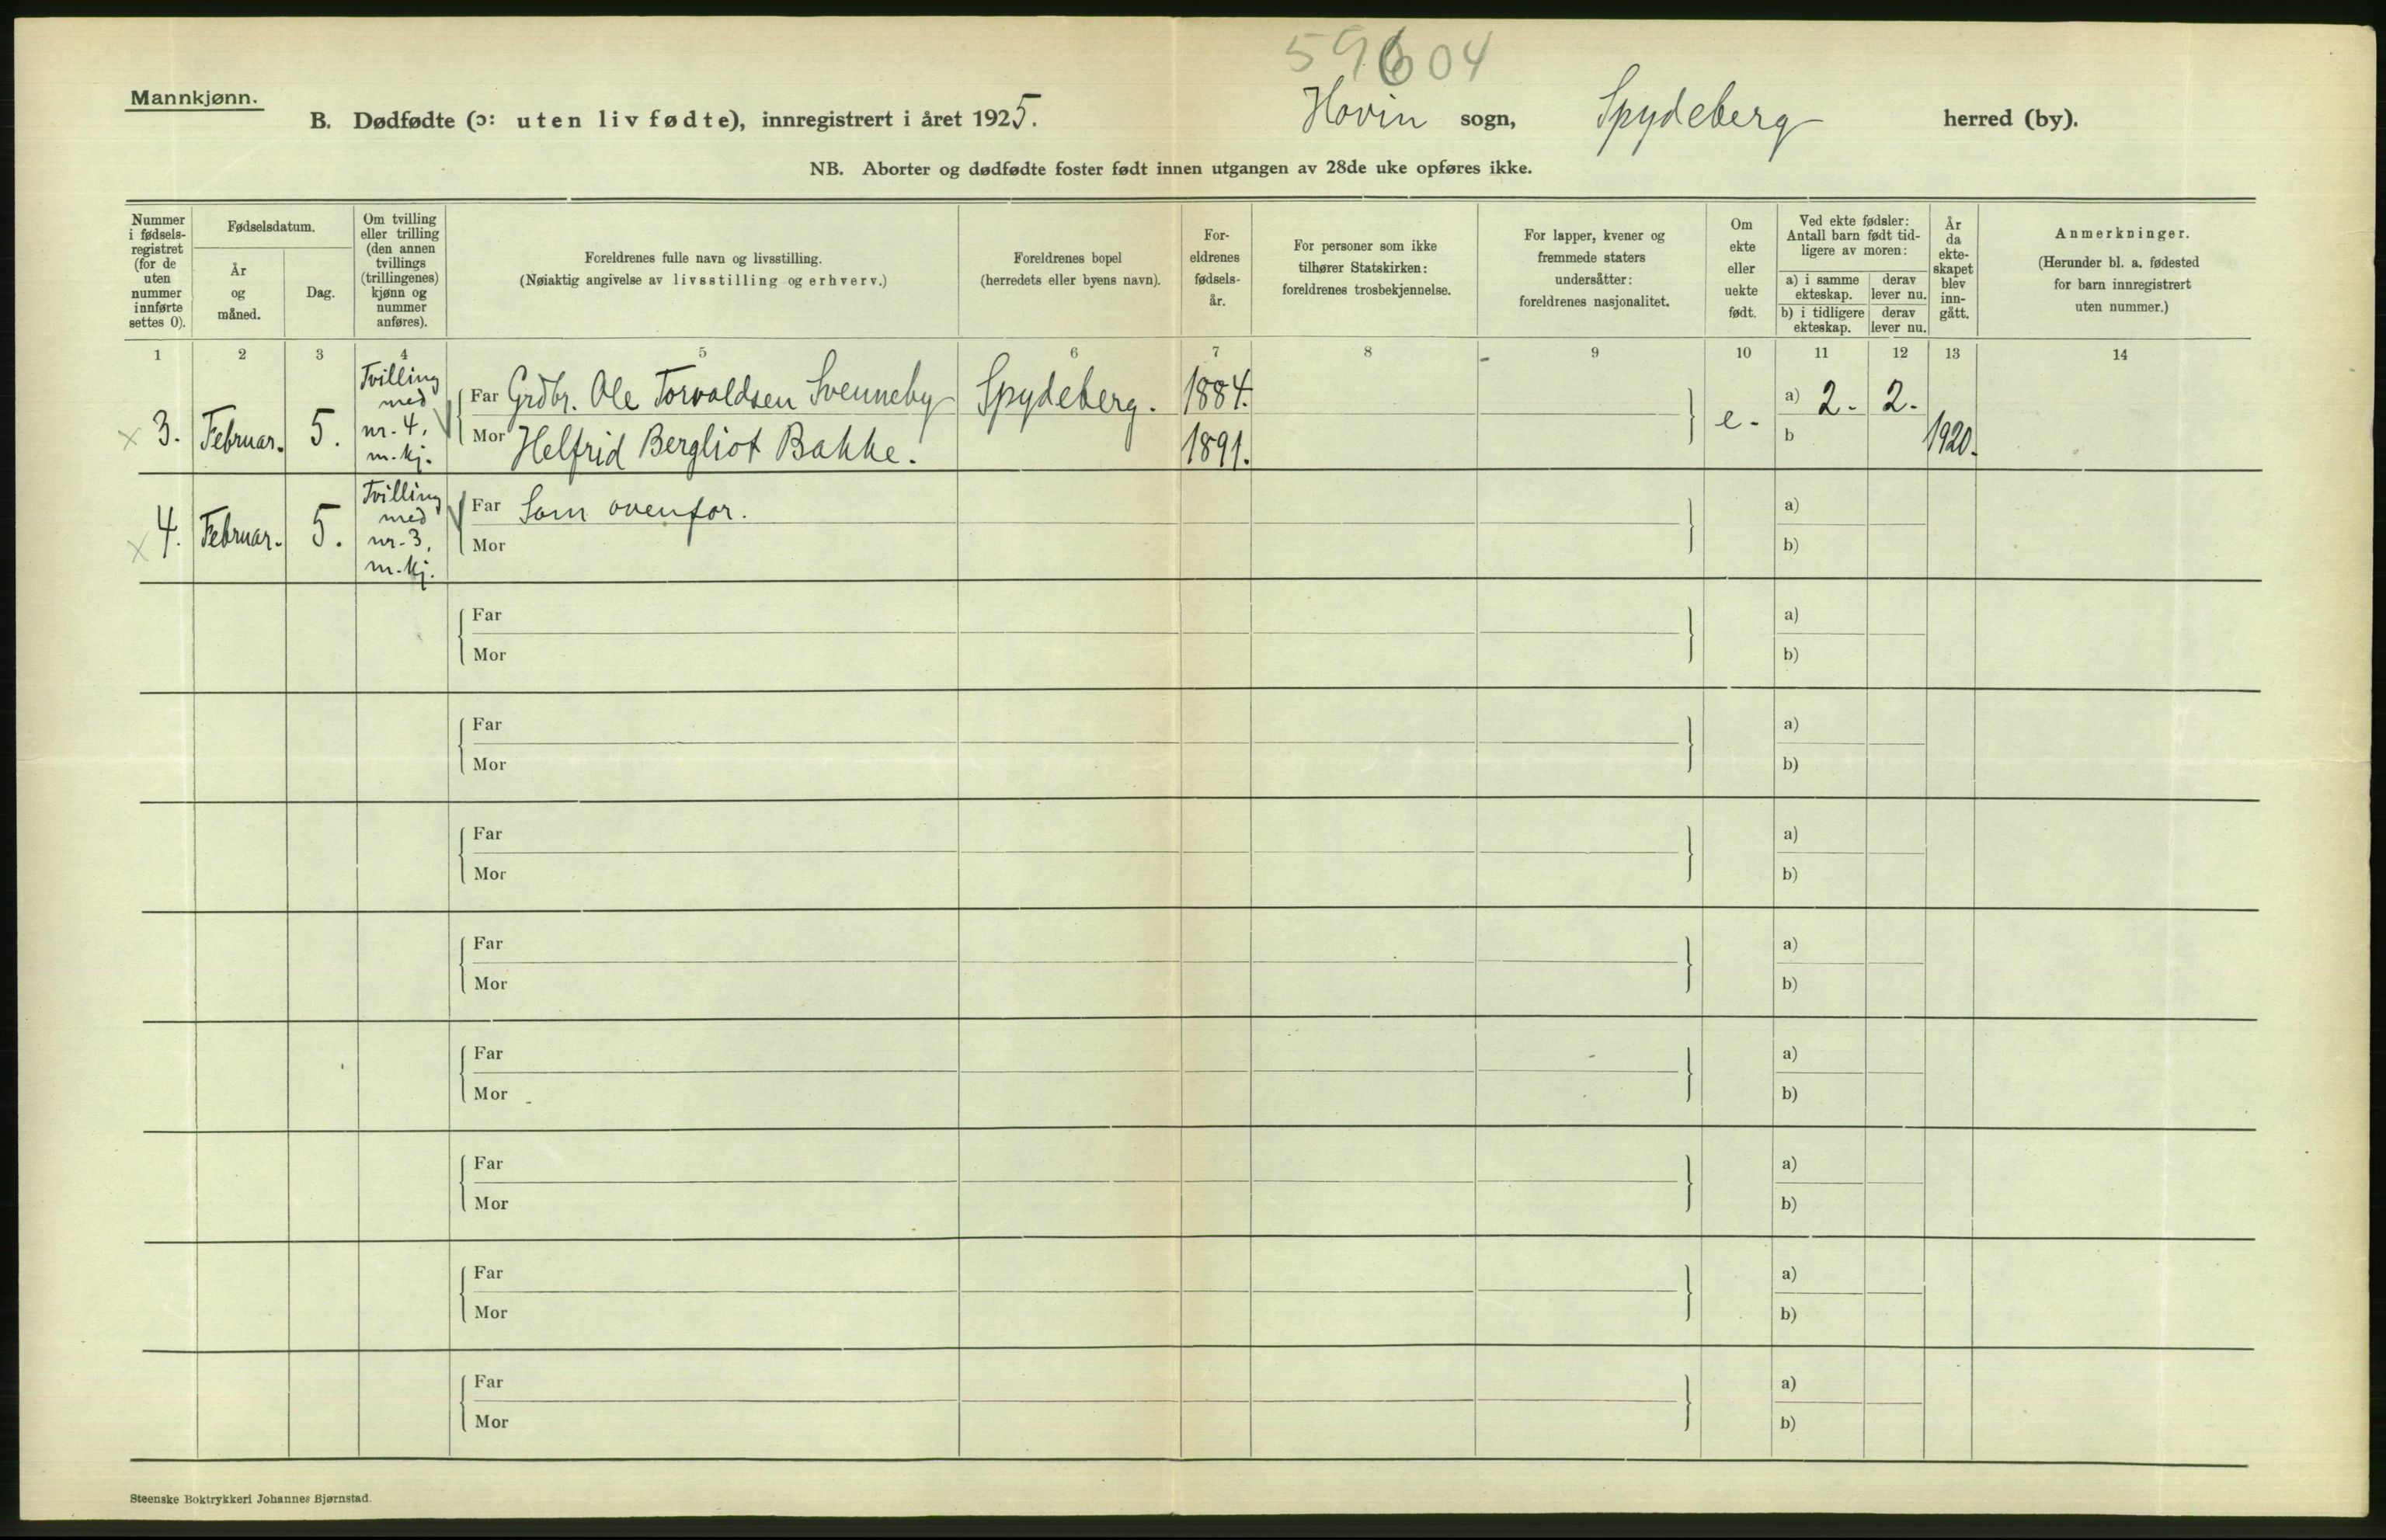 59604
Mannkjønn.
B. Dødfødte (ɔ: uten liv fødte), innregistrert i året 1925. Hovin sogn, Spydeberg herred (by).
NB. Aborter og dødfødte foster født innen utgangen av 28de uke opføres ikke.
Nummer
i fødsels-
registret
(for de
uten
nummer
innførte
settes 0).
Fødselsdatum.
År
og
måned.
Dag.
Om tvilling
eller trilling
(den annen
tvillings
(trillingenes)
kjønn og
nummer
anføres).
Foreldrenes fulle navn og livsstilling.
(Nøiaktig angivelse av livsstilling og erhverv.)
Foreldrenes bopel
(herredets eller byens navn).
For-
eldrenes
fødsels-
år.
For personer som ikke
tilhører Statskirken:
foreldrenes trosbekjennelse.
For lapper, kvener og
fremmede staters
undersåtter:
foreldrenes nasjonalitet.
Om
ekte
eller
uekte
født.
Ved ekte fødsler:
Antall barn født tid-
ligere av moren:
a) i samme
ekteskap.
derav
lever nu.
b) i tidligere
ekteskap.
derav
lever nu.
År
da
ekte-
skapet
blev
inn-
gått.
Anmerkninger.
(Herunder bl. a. fødested
for barn innregistrert
uten nummer.)
1 2 3 4 5 6 7 8 9 10 11 12 13 14
× 3. Februar. 5.
Tvilling
med
nr. 4,
m.kj.
Far Grdbr. Ole Torvaldsen Svenneby Spydeberg. 1884. e. a) 2. 2.
Mor Helfrid Bergliot Bakke. 1891. b 1920.
× 4. Februar. 5.
Tvilling
med
nr. 3,
m.kj.
Far Som ovenfor. a)
Mor b)
Far a)
Mor b)
Far a)
Mor b)
Far a)
Mor b)
Far a)
Mor b)
Far a)
Mor b)
Far a)
Mor b)
Far a)
Mor b)
Far a)
Mor b)
Steenske Boktrykkeri Johannes Bjørnstad.